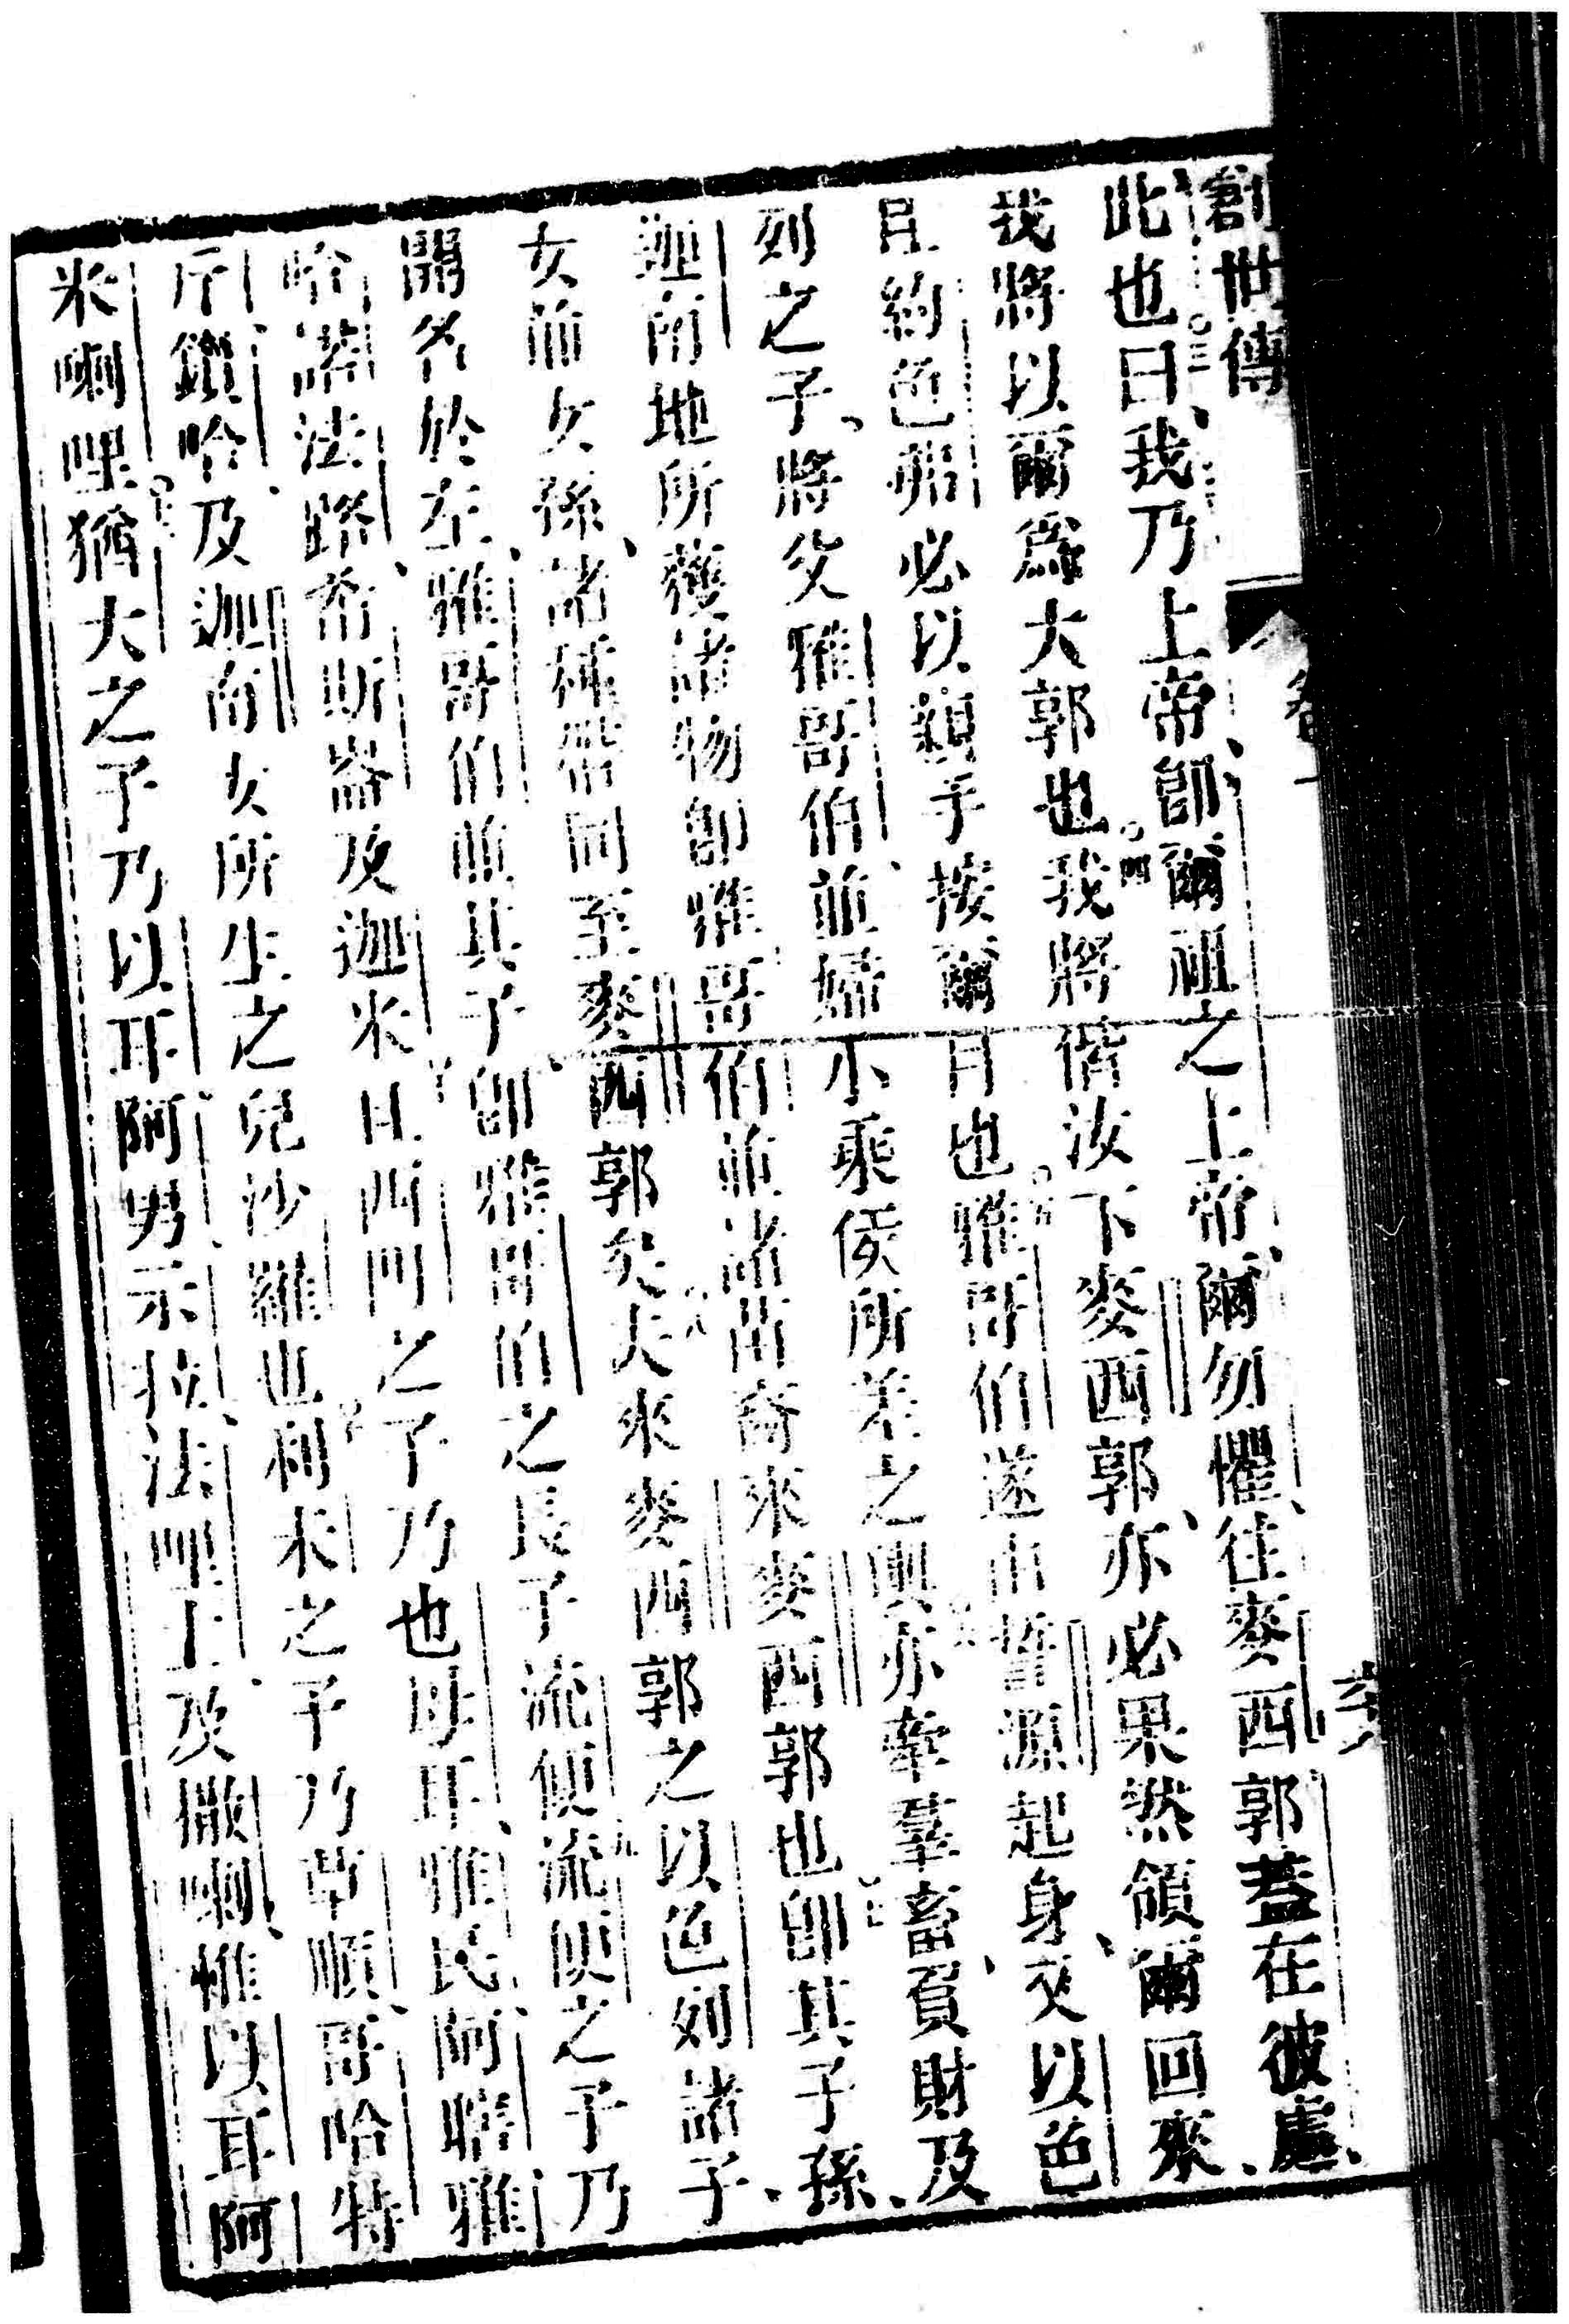 創世傳
此也曰我乃上帝卽爾祖之上帝爾勿懼往麥西郭蓋在彼處
我將以爾爲大郭也〇四我將偕汝下麥西郭亦必果然領爾回來
且約色弗必以親手按爾目也雅哥伯遂由誓源起身夾以色
列之子將父雅哥伯並婦小乘侯所差之輿亦牽羣畜負財及
迦南地所獲諸物卽雅哥伯並諸苗裔來麥西郭也卽其子孫
女並女孫諸種帶同至麥西郭矣夫來麥西郭之以色列諸子
開名於左雅哥伯並其子卽雅哥伯之長子流便流便之子乃
哈諾法路希斯崙及迦米且西門之子乃也母耳雅民阿轄雅
斤鎖哈及迦南女所生之兒沙羅也利未之子乃革順哥哈特
米喇哩猶大之子乃以耳阿男示拉法哩士及撒喇惟以耳阿